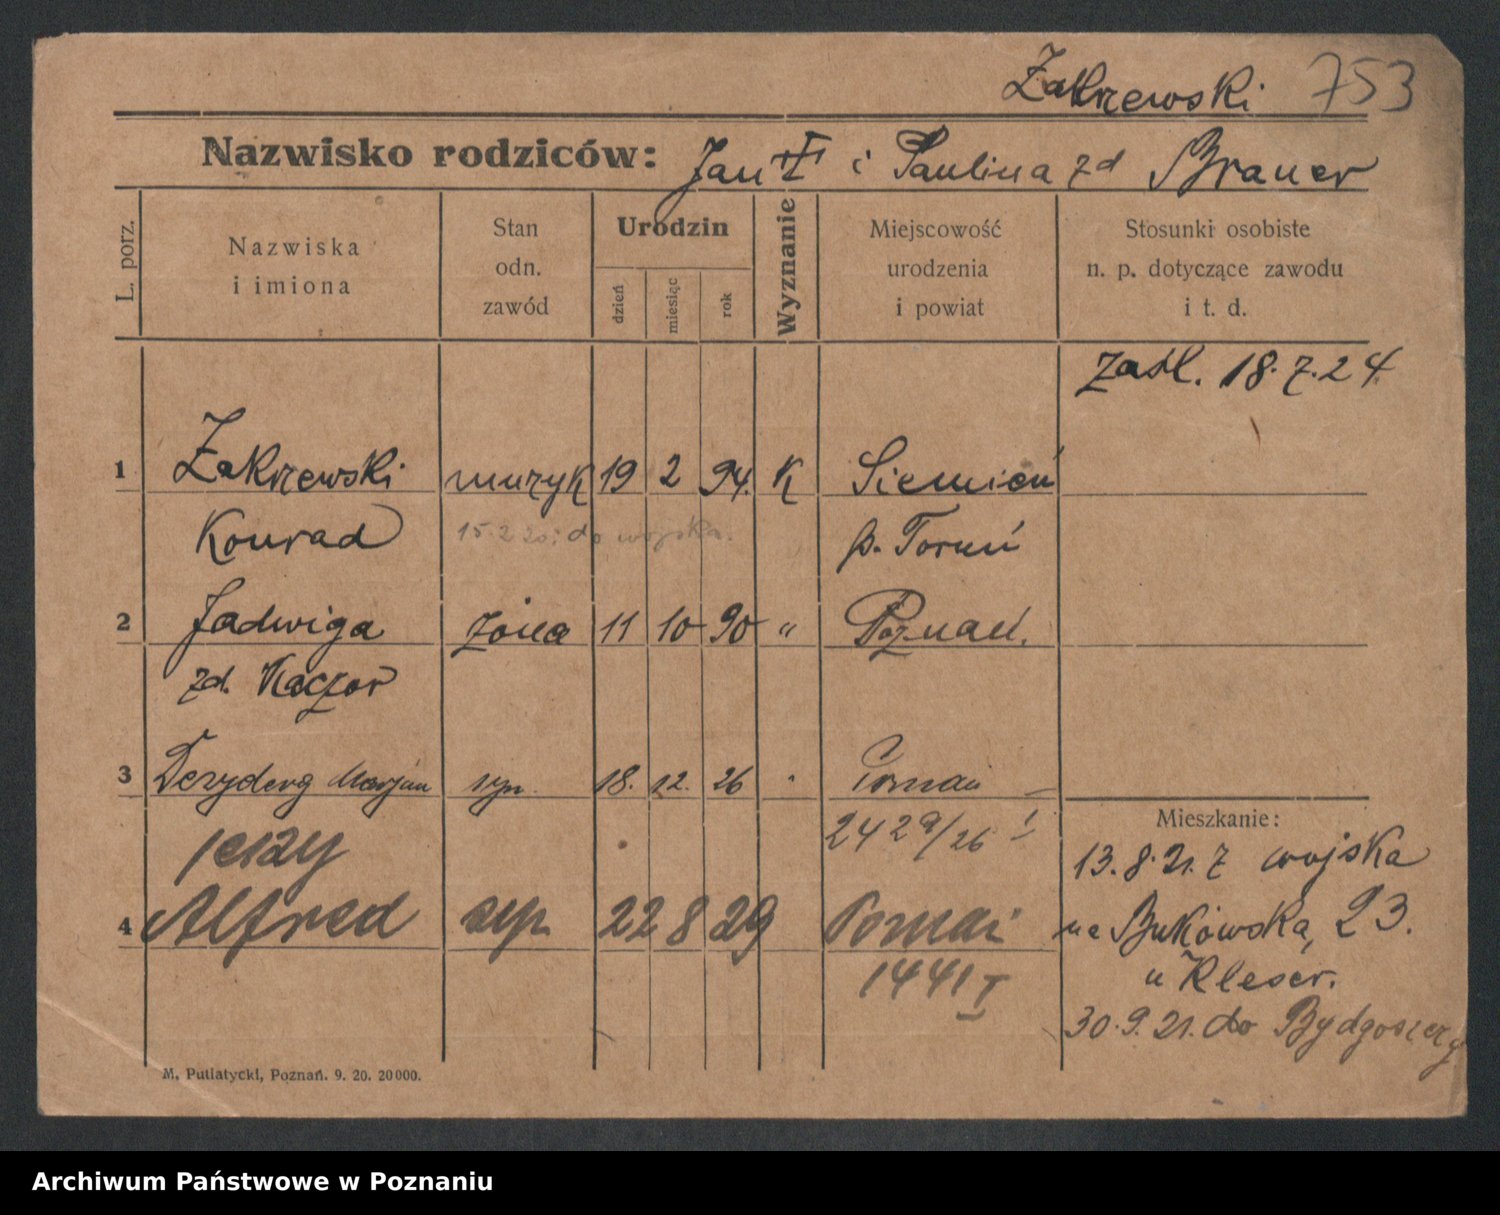 Zakrzewski 753
Nazwisko rodziców: Jan † i Paulina zd Brauer
L. porz.
Nazwiska i imiona
Stan odn. zawód
Urodzin
dzień
miesiąc
rok
Wyznanie
Miejscowość urodzenia i powiat
Stosunki osobiste n. p. dotyczące zawodu i t. d.
zaśl. 18.7.24
1 Zakrzewski muzyk 19 2 94. K Siemioń
Konrad 15.2 20. do wojska. p. Toruń
2 Jadwiga żona 11 10 90 " Poznań.
zd. Kaczor
3 Dezydery Marjan syn 18. 12. 26 Poznań
2429/26 I
Mieszkanie:
13.8.21. z wojska
Jerzy
4 Alfred syn 22 8 29 Poznań
1441 I
na Bukowska, 23.
u Kleser.
30.9.21. do Bydgoszczy
M. Putiatycki, Poznań. 9. 20. 20000.
Archiwum Państwowe w Poznaniu